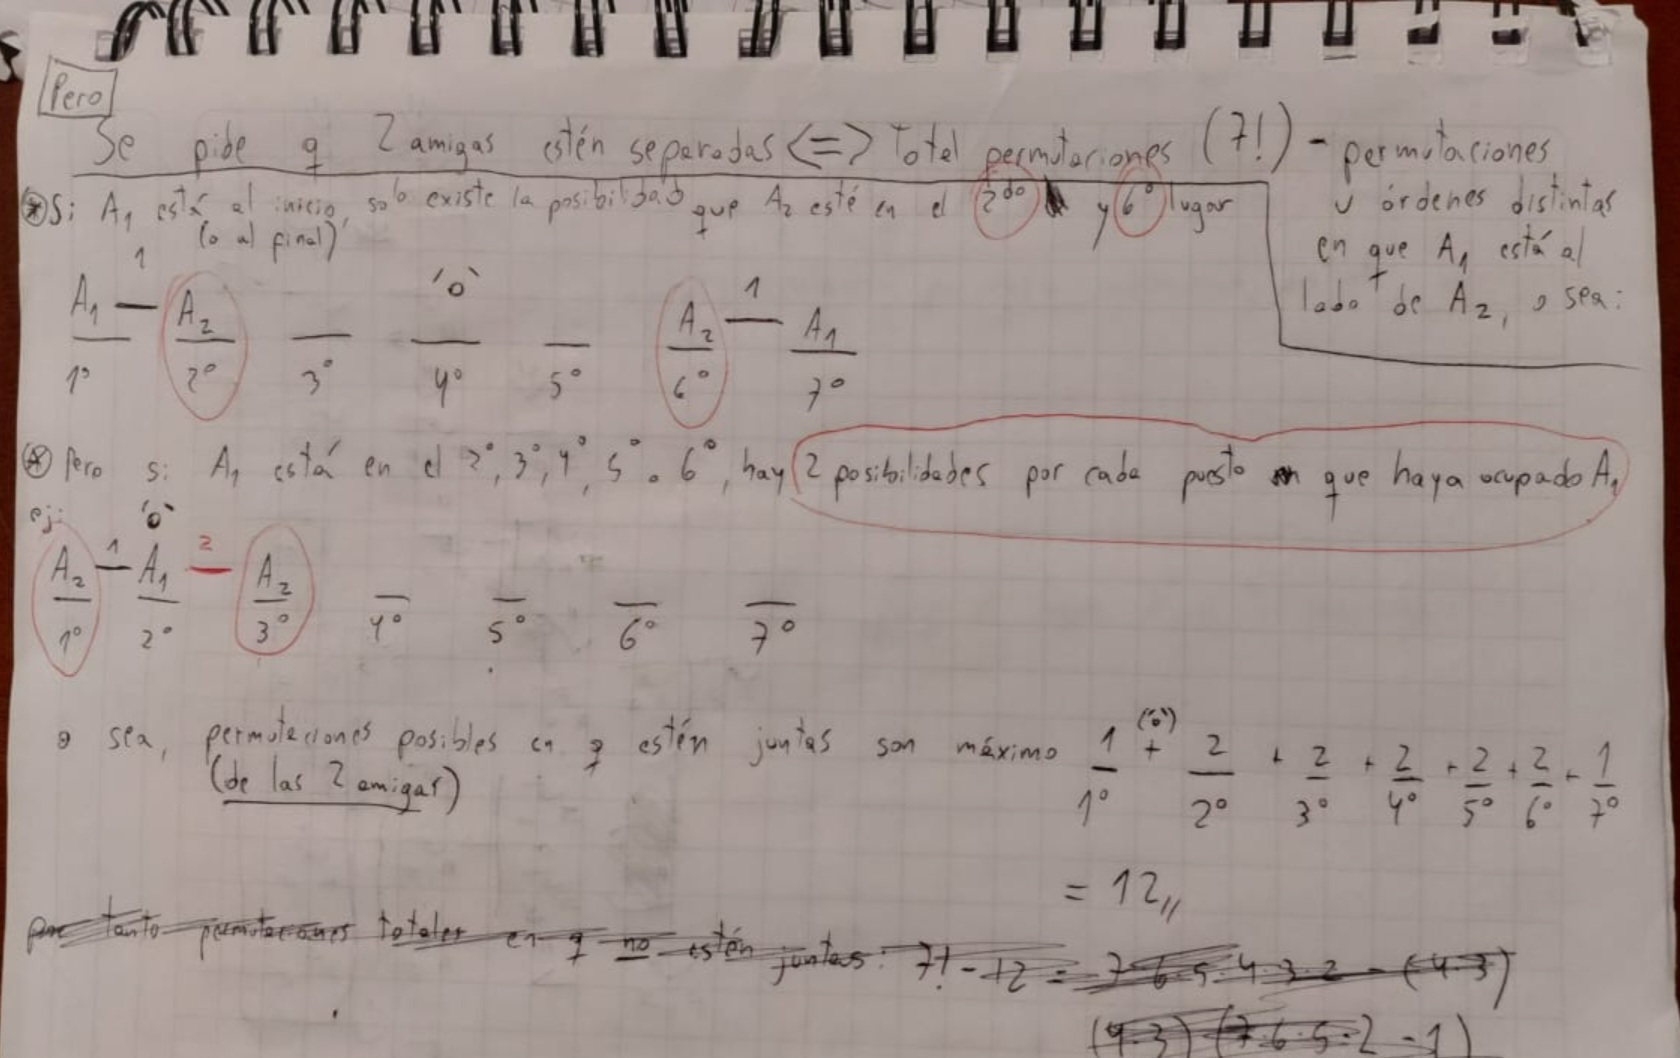 Pero
Se pide q 2 amigas estén separadas <=> Total permutaciones (7!) - permutaciones
u órdenes distintas
en que A₁ está al
lado de A₂, o sea:
* Si A₁ está al inicio, solo existe la posibilidad que A₂ esté en el 2do y 6° lugar
(o al final)
1 'o' 1
A₁ — A₂ A₂ — A₁
1° 2° 3° 4° 5° 6° 7°
* Pero si A₁ está en el 2°, 3°, 4°, 5° o 6°, hay 2 posibilidades por cada puesto en que haya ocupado A₁
ej: 'o'
A₂ 1— A₁ 2— A₂
1° 2° 3° 4° 5° 6° 7°
o sea, permutaciones posibles en q estén juntas son máximo 1 ('o') + 2 + 2 + 2 + 2 + 2 + 1
(de las 2 amigas) 1° 2° 3° 4° 5° 6° 7°
= 12
por tanto permutaciones totales en q no estén juntas: 7! - 12 = 7·6·5·4·3·2 - (4·3)
(4·3) (7·6·5·2 - 1)